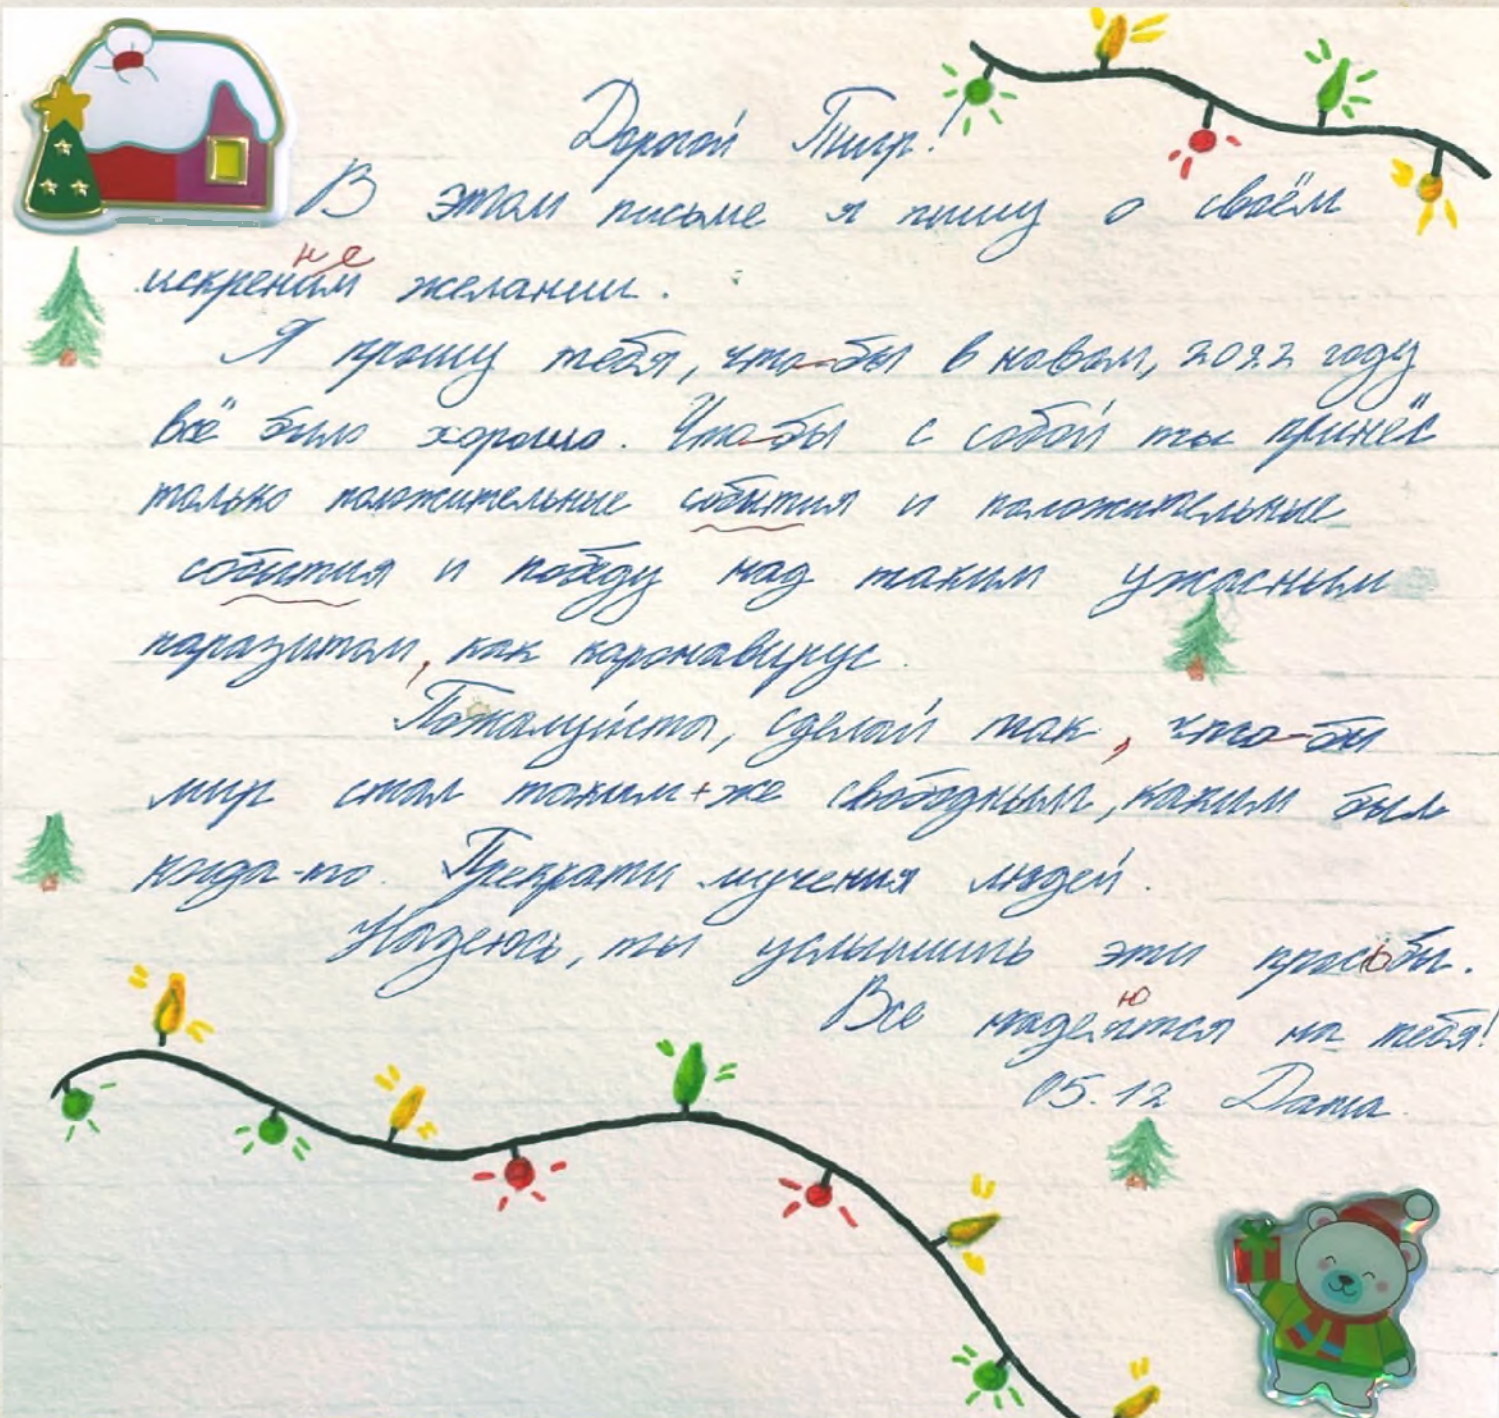 Дорогой Тигр!
В этом письме я пишу о своём
не
искреним желании.
Я прошу тебя, что-бы в новом, 2022 году
всё было хорошо. Что-бы с собой ты принёс
только положительные события и положительные
события и победу над таким ужасным
паразитом, как коронавирус.
Пожалуйста, сделай так, что-бы
мир стал таким+же свободным, каким был
когда-то. Прекрати мучения людей.
Надеюсь, ты услышишь эти просьбы.
ю
Все надеятся на тебя!
05.12 Даша.